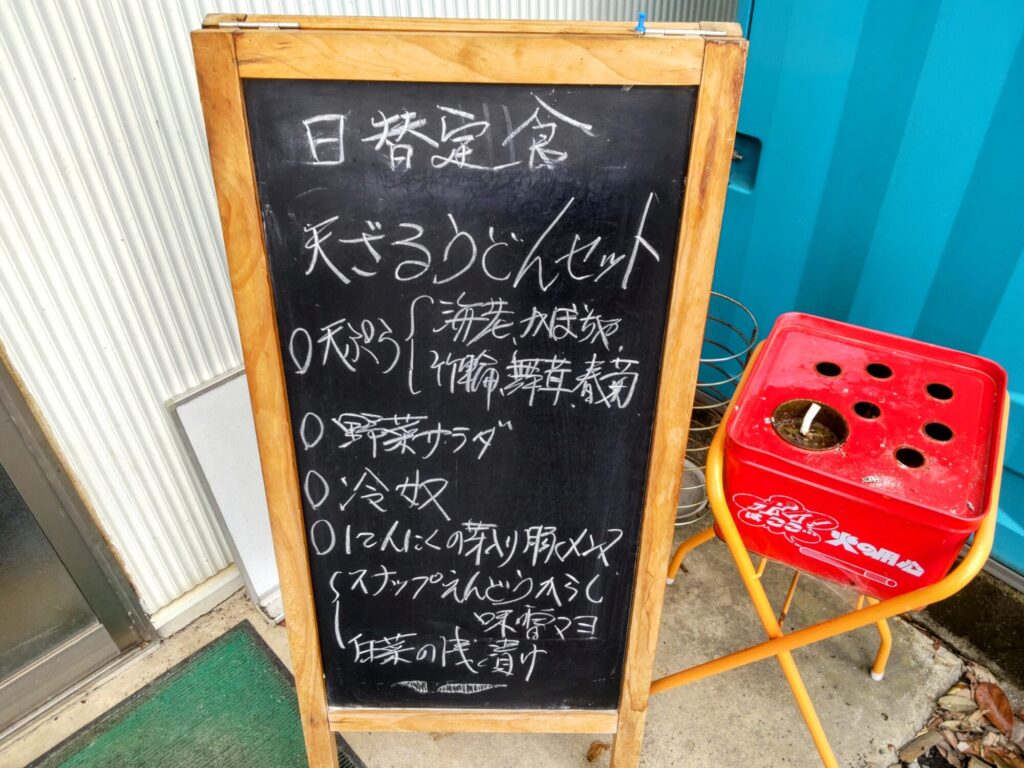 日替定食
天ざるうどんセット
○天ぷら{海老、かぼちゃ、
竹輪、舞茸、春菊
○野菜サラダ
○冷奴
○にんにくの芽入り豚メンマ
{スナップえんどうからし
味噌マヨ
白菜の浅漬け
火の用心